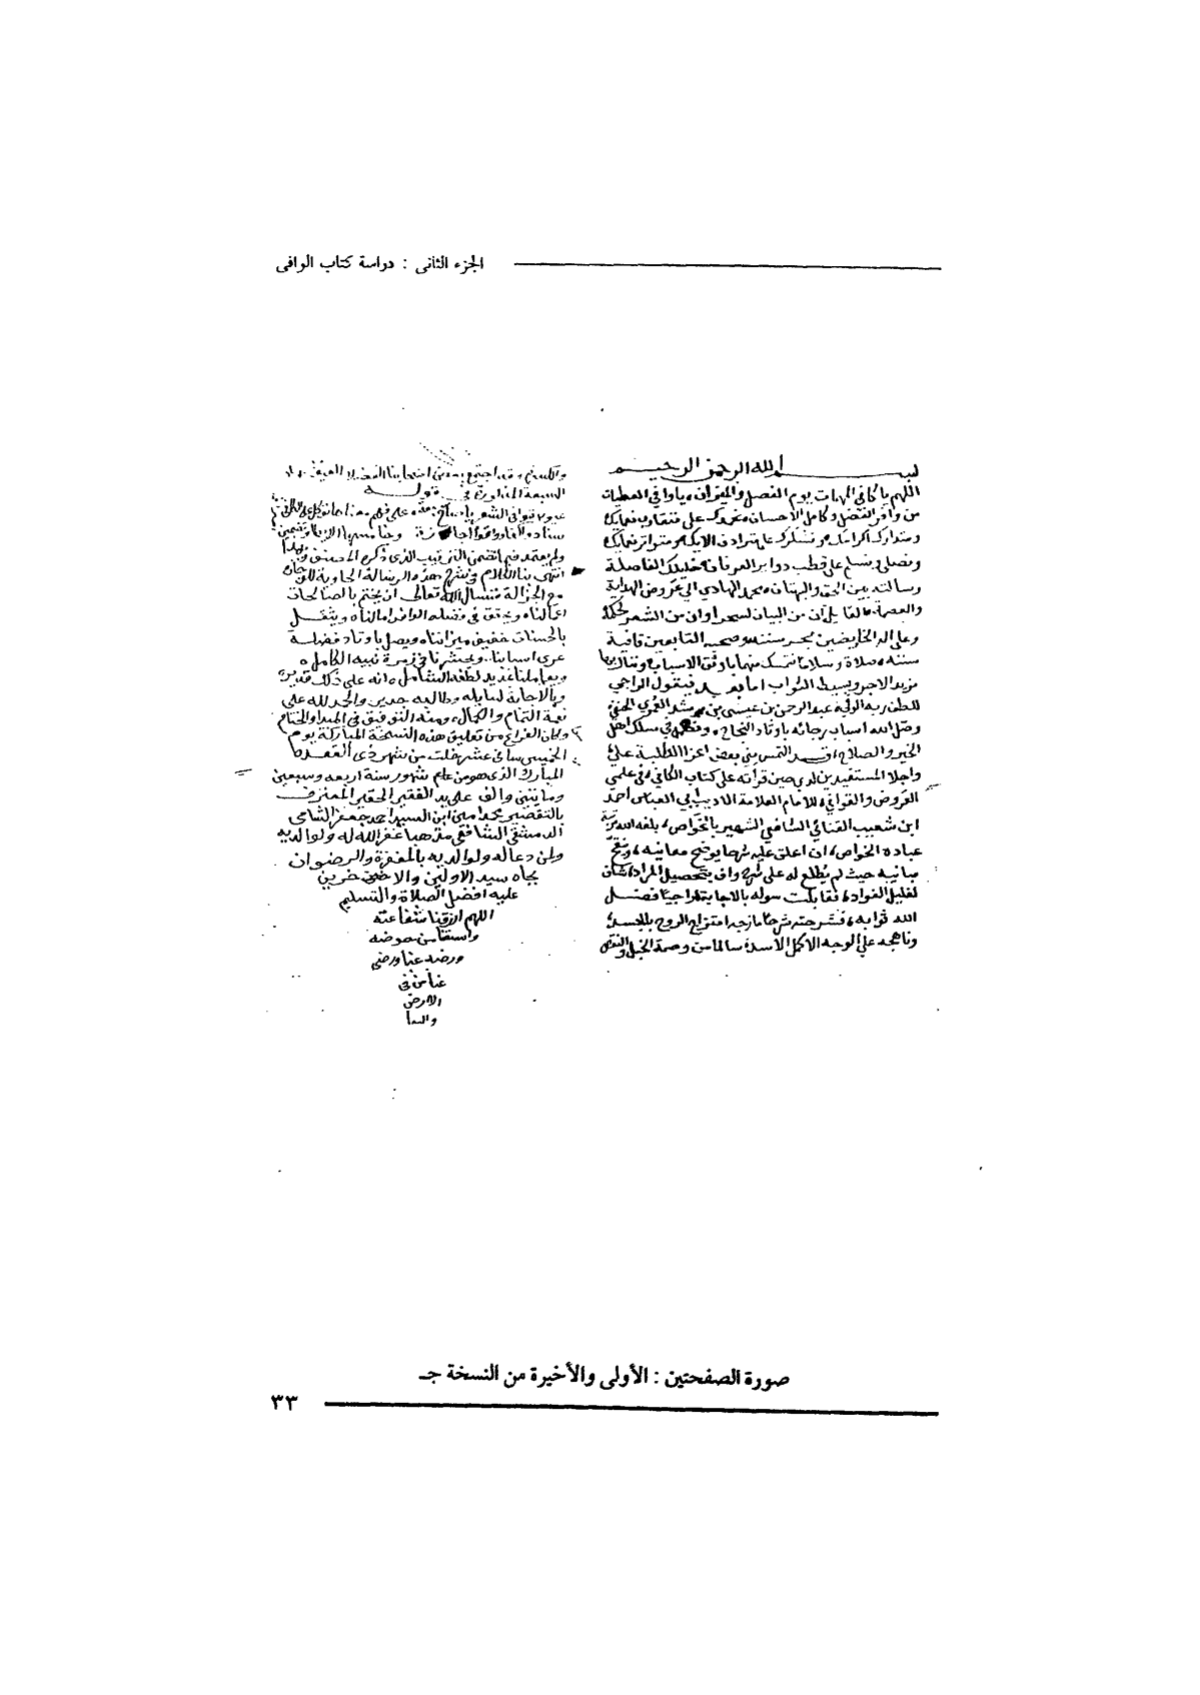 الجزء الثانى : دراسة كتاب الوافى
بسم الله الرحمن الرحيم
اللهم يا كافي المهمات يوم الفصل والميزان ويا وافي العطيات
من وافر الفضل وكامل الاحسان نحمدك على متقارب نعمايك
ومتدارك اكرامك ونشكرك على ترادف الايك ومتواتر نعمايك
ونصلى ونسلم على قطب دواير العرفان خليلك الفاصلة
رسالته بين الحق والبهتان محمد الهادي الي عروض الهداية
والعصمة القايل ان من البيان لسحرا وان من الشعر لحكمة
وعلى اله الخايضين بحر سنته وصحبه التابعين قافية
سننه صلاة وسلاما نتمسك منهما باوثق الاسباب وننال بهما
مزيد الاجر وبسيط الثواب اما بعد فيقول الراجي
للطف ربه الوفي عبد الرحمن بن عيسى بن مرشد العمري الحنفي
وصل الله اسباب رجائه باوتاد النجاح ونظمه في سلك اهل
الخير والصلاح قد التمس مني بعض اعزا الطلبة علي
واجلا المستفيدين لدي حين قرأته على كتاب الكافي في علمي
العروض والقوافي للامام العلامة الاديب ابي العباس احمد
ابن شعيب القنائي الشافعي الشهير بالخواص بلغه الله مرتبة
عباده الخواص ان اعلق عليه شرحا يوضح معانيه وينقح
مبانيه حيث لم يطلع له على شرح واف بتحصيل المراد شاف
لغليل الفواد فقابلت سوله بالاجابة راجيا فضل
الله ثوابه فشرحته شرحا مازجه امتزاج الروح بالجسد
وناهجه علي الوجه الاكمل الاسد سالما من وصمة الخلل والنقص
قوله
ولم يعتمد فيها تضمن الترتيب الذى ذكره المصنف
انتهى بنا الكلام في شرح هذه الرسالة الحاوية
مع الجزالة فنسال الله تعالى ان يختم بالصالحات
اعمالنا ويحقق في فضله الوافر امالنا ويثقل
بالحسنات خفيف ميزاننا ويصل باوتاد فضله
عرى اسبابنا ويحشرنا في زمرة نبيه الكامل
ويعاملنا بمديد لطفه الشامل انه على ذلك قدير
وبالاجابة لسايله وطالبه جدير والحمد لله على
نعمة التمام والكمال ومنه التوفيق في المبدا والختام
وكان الفراغ من تعليق هذه النسخة المباركة يوم
الخميس عشر خلت من شهر ذى القعدة
المبارك الذى هو من عام شهور سنة اربعة وسبعين
وماتين والف على يد الفقير الحقير المعترف
بالتقصير محمد امين ابن السيد احمد جعفر الشامى
الدمشقى الشافعى مذهبا غفر الله له ولوالديه
ولمن دعا له ولوالديه بالمغفرة والرضوان
بجاه سيد الاولين والاخرين
عليه افضل الصلاة والتسليم
اللهم ارزقنا شفاعته
واسقنا من حوضه
ورضه عنا ورضى
عنا من فى
الارض
والسما
صورة الصفحتين : الأولى والأخيرة من النسخة جـ
٣٣